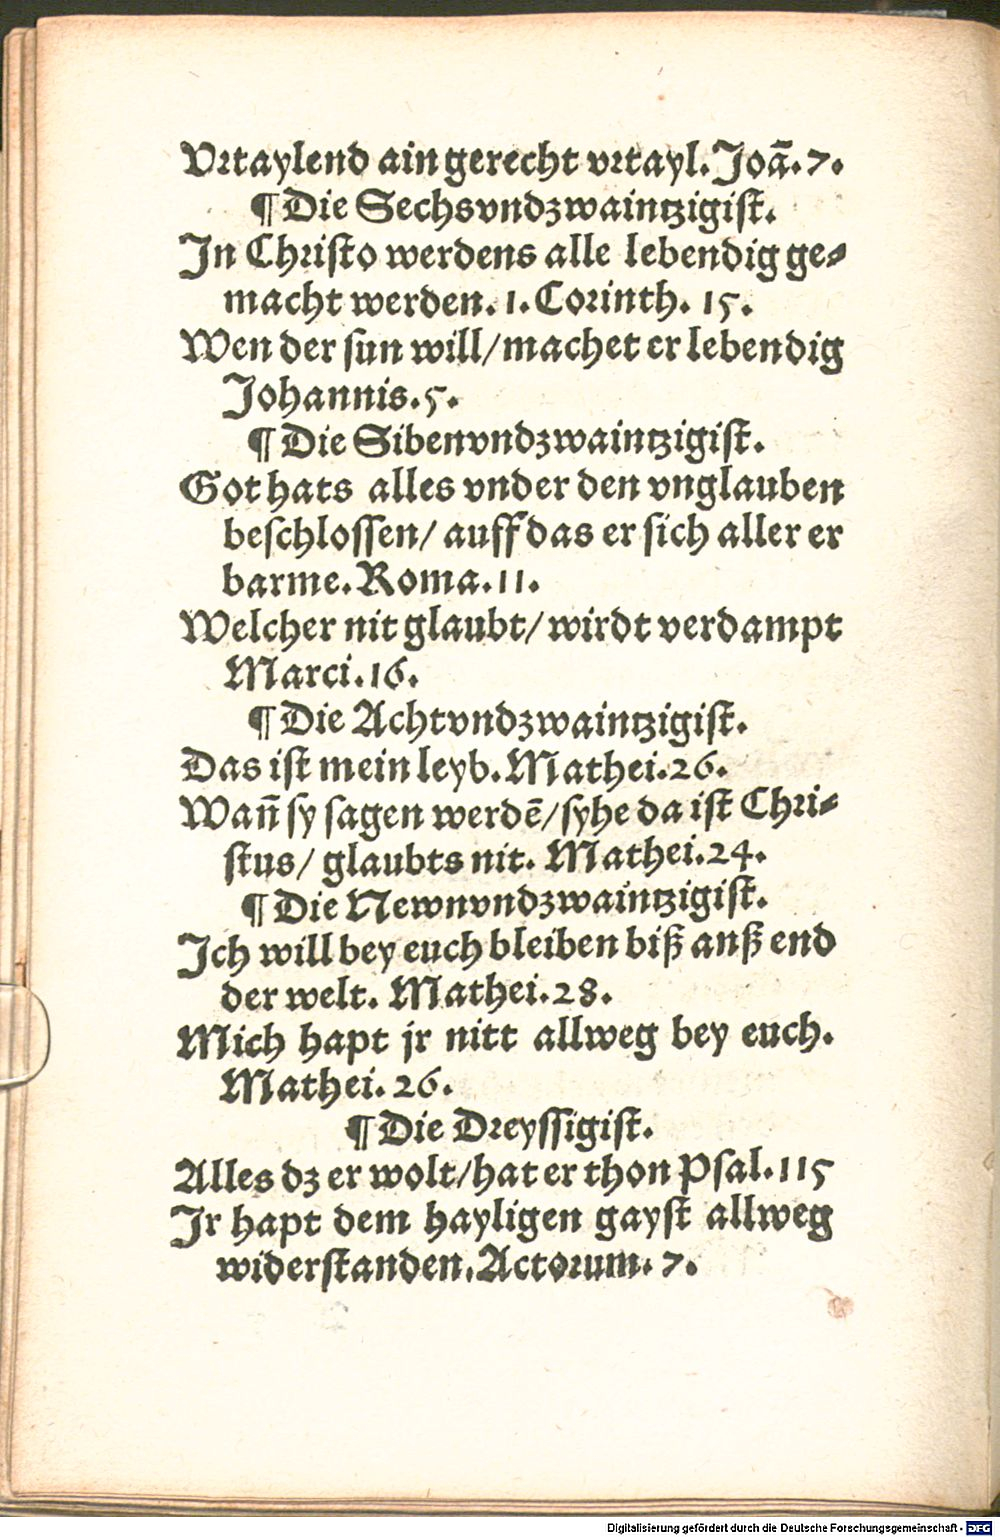 Vrtaylend ain gerecht vrtayl. Joã. 7.
¶ Die Sechsvndzwaintzigist.
In Christo werdens alle lebendig ge⸗
macht werden. 1. Corinth. 15.
Wen der sun will/ machet er lebendig
Johannis. 5.
¶ Die Sibenvndzwaintzigist.
Got hats alles vnder den vnglauben
beschlossen/ auff das er sich aller er
barme. Roma. 11.
Welcher nit glaubt/ wirdt verdampt
Marci. 16.
¶ Die Achtvndzwaintzigist.
Das ist mein leyb. Mathei. 26.
Wañ sy sagen werdē/ syhe da ist Chri⸗
stus/ glaubts nit. Mathei. 24.
¶ Die Newnvndzwaintzigist.
Ich will bey euch bleiben biß anß end
der welt. Mathei. 28.
Mich hapt jr nitt allweg bey euch.
Mathei. 26.
¶ Die Dreyssigist.
Alles dz er wolt/ hat er thon Psal. 115
Ir hapt dem hayligen gayst allweg
widerstanden. Actorum. 7.
Digitalisierung gefördert durch die Deutsche Forschungsgemeinschaft - DFG